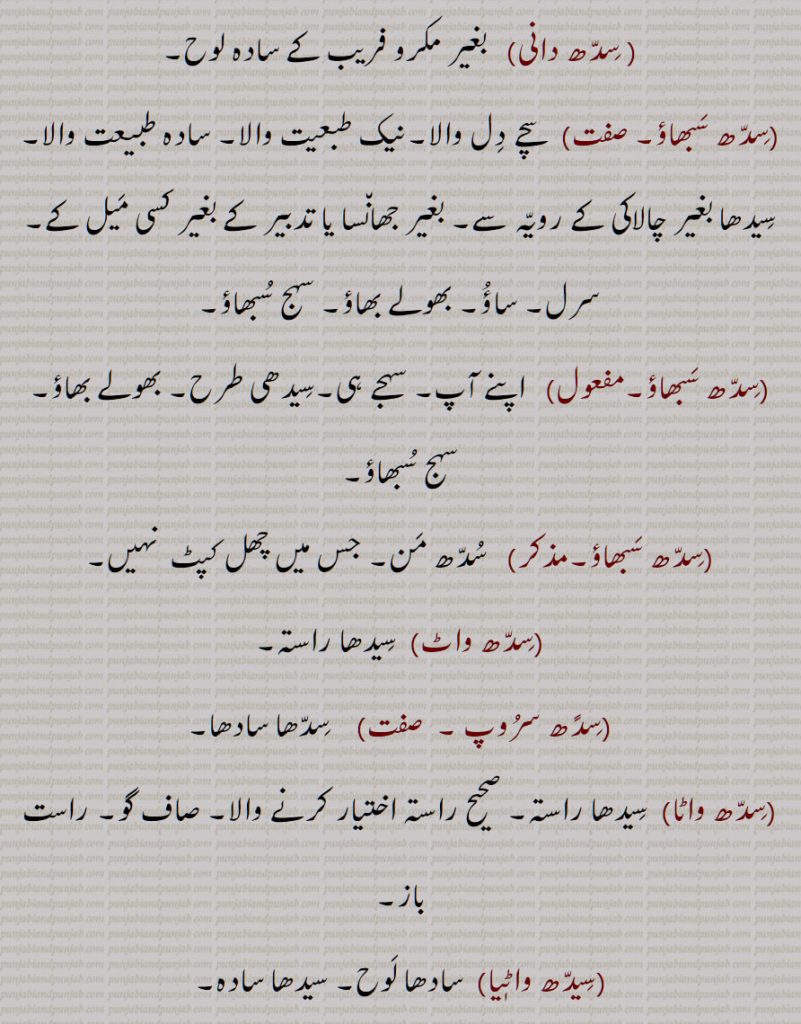 ( سِدّھ دانی) بغیر مکر و فریب کے سادہ لوح۔
(سِدّھ سَبھاؤ۔ صفت) سچے دِل والا۔ نیک طبعیت والا۔ سادہ طبیعت والا۔
سِیدھا بغیر چالاکی کے رویّہ سے۔ بغیر جھانّسا یا تدبیر کے بغیر کسی مَیل کے۔
سرل۔ ساؤُ۔ بھولے بھاؤ۔ سہج سُبھاؤ۔
(سِدّھ سَبھاؤ۔مفعول) اپنے آپ۔ سہجے ہی۔سِیدھی طرح۔ بھولے بھاؤ۔
سہج سُبھاؤ۔
(سِدّھ سَبھاؤ۔مذکر) سُدّھ مَن۔ جس میں چھل کپٹ نہیں۔
(سِدّھ واٹ) سِیدھا راستہ۔
(سِدًھ سرُوپ ۔ صفت) سِدّھا سادھا۔
(سِدّھ واٹا) سِیدھا راستہ۔ صحیح راستہ اختیار کرنے والا۔ صاف گو۔ راست
باز۔
(سِیدّھ واٹیا) سادھا لَوح۔ سیدھا سادہ۔
punjabiandpunjab.com